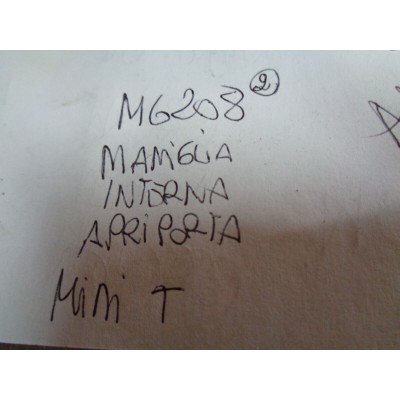 MG208 2
MANIGLIA
INTERNA
APRIPORTA
MINI T